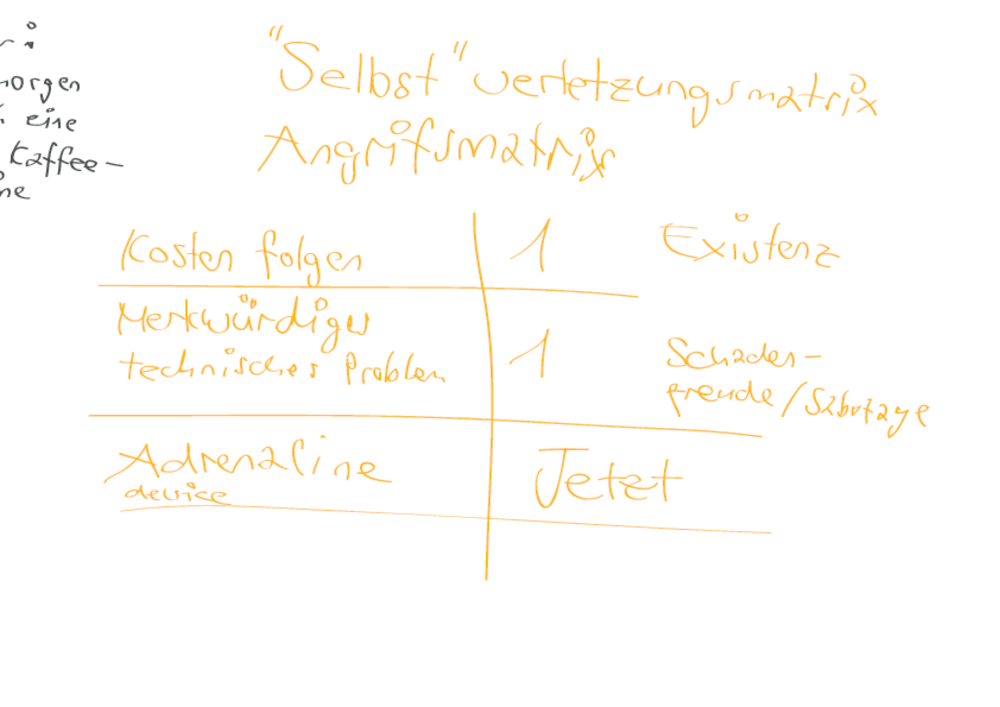 horgen
eine
Kaffee-
ne
"Selbst" verletzungsmatrix
Angrifsmatrix
Kosten folgen 1 Existenz
Merkwürdiges
technisches Problem 1 Schaden-
freude/Sabotage
Adrenaline Jetzt
device